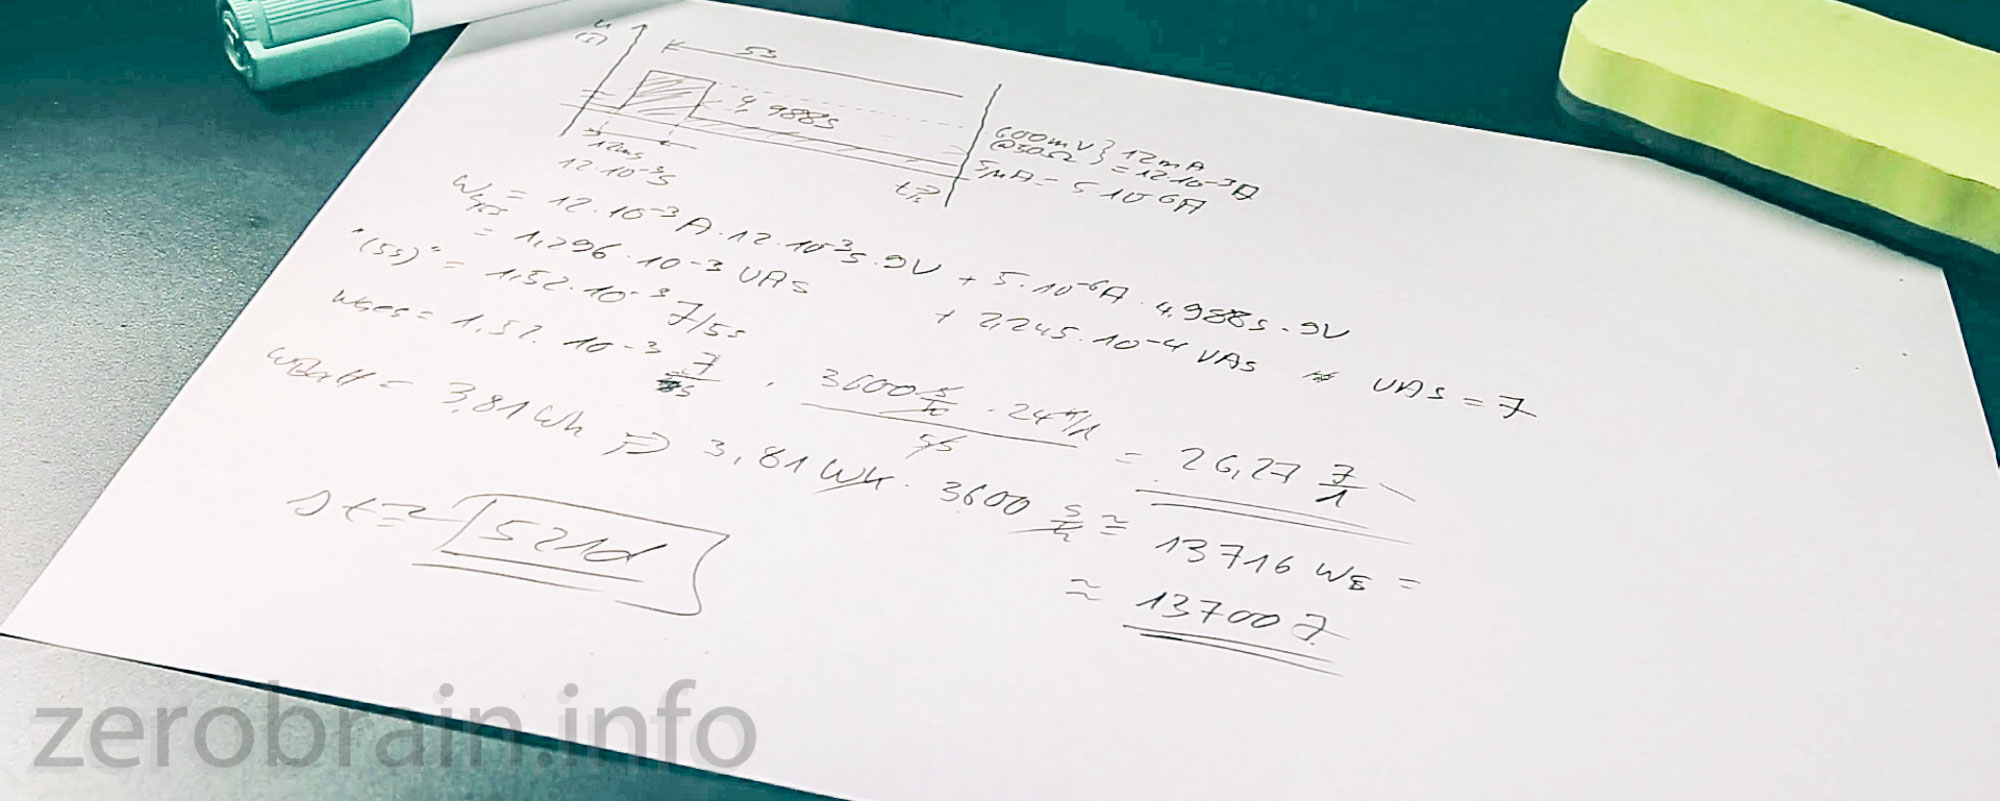 u
5s
4,988s
12ms
12·10⁻³s
t/s
600mV } 12mA
@50Ω = 12·10⁻³A
5µA = 5·10⁻⁶A
Wges = 12·10⁻³A·12·10⁻³s·9V + 5·10⁻⁶A·4,988s·9V
= 1,296·10⁻³ VAs + 2,245·10⁻⁴ VAs VAs = J
"(5s)" = 1,52·10⁻³ J/5s
Wges = 1,52·10⁻³ J/5s · 3600 s/h · 24 h/d / 5s = 26,27 J/d
WBatt = 3,81Wh ⇒ 3,81Wh · 3600 s/h ≅ 13716 Ws =
≈ 13700 J
t = 521d
zerobrain.info